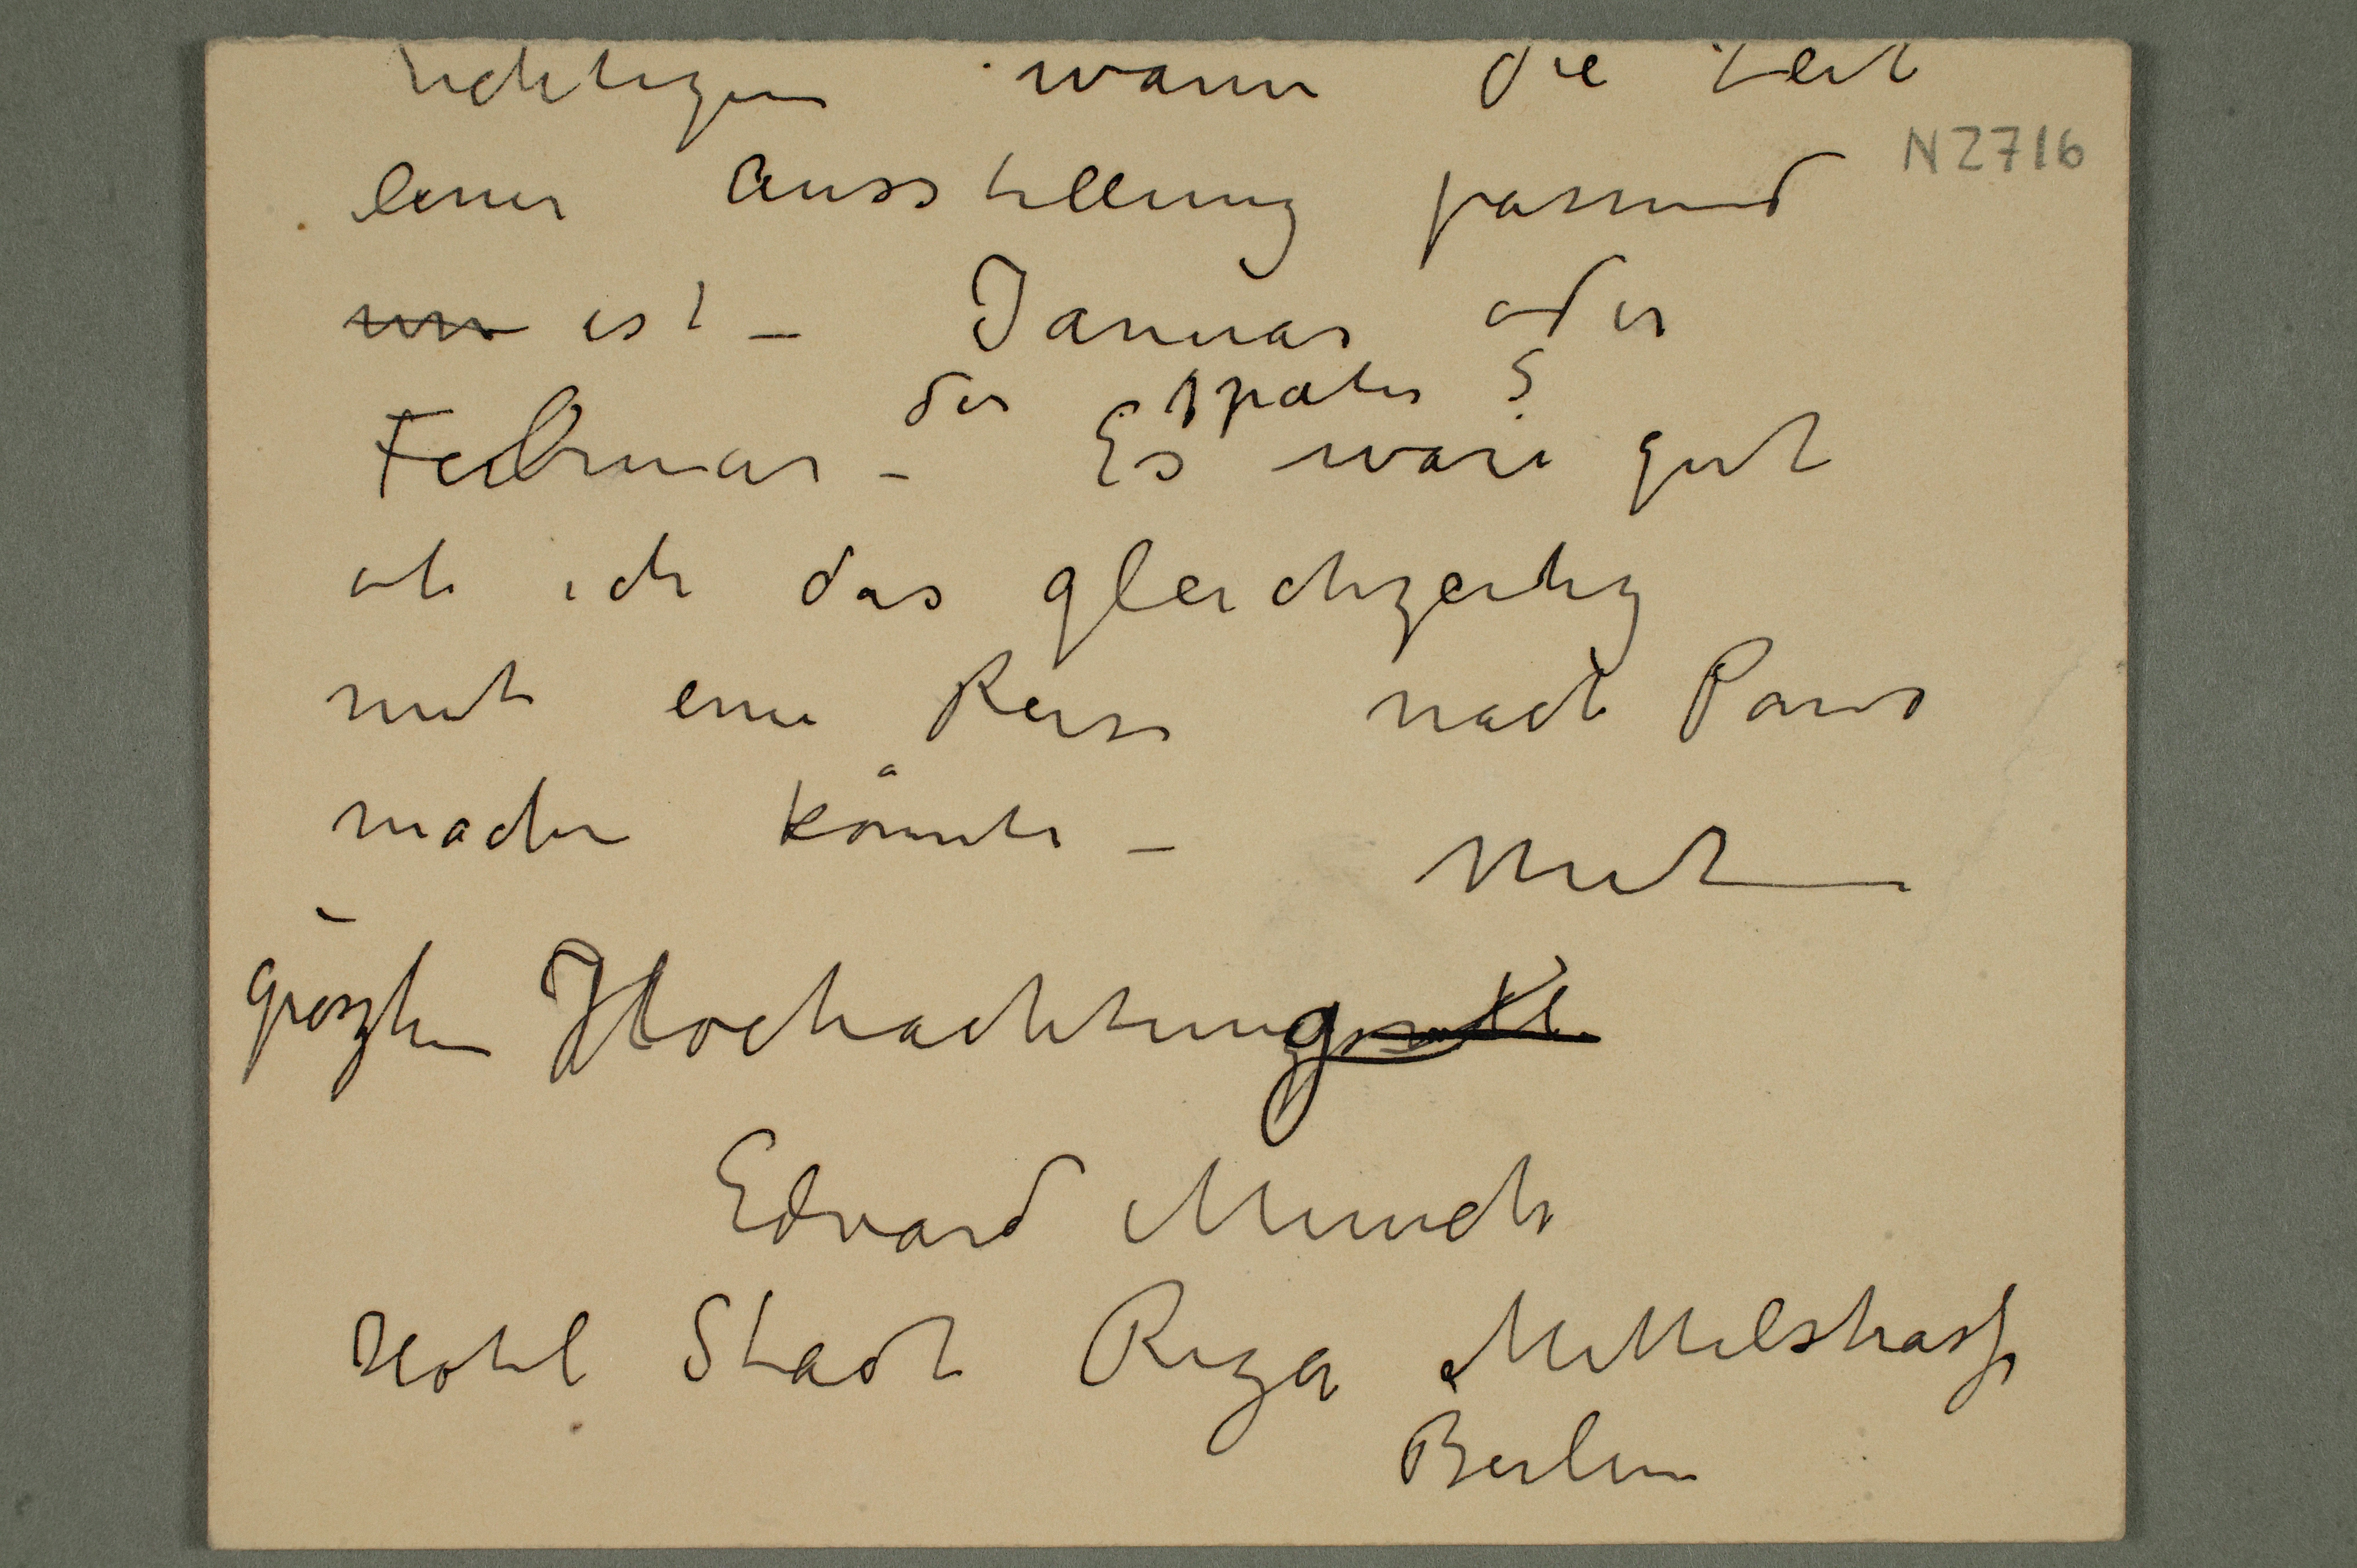 richtigen wann die Zeit
N 2716
einer Ausstellung passend
ist – Januar oder
Februar – oder später? Es wäre gut
ob ich das gleichzeitig
mit eine Reise nach Paris
machen könnte – Mit
gröszten Hochachtung
Edvard Munch
Hotel Stadt Riga Mittelstrasse
Berlin